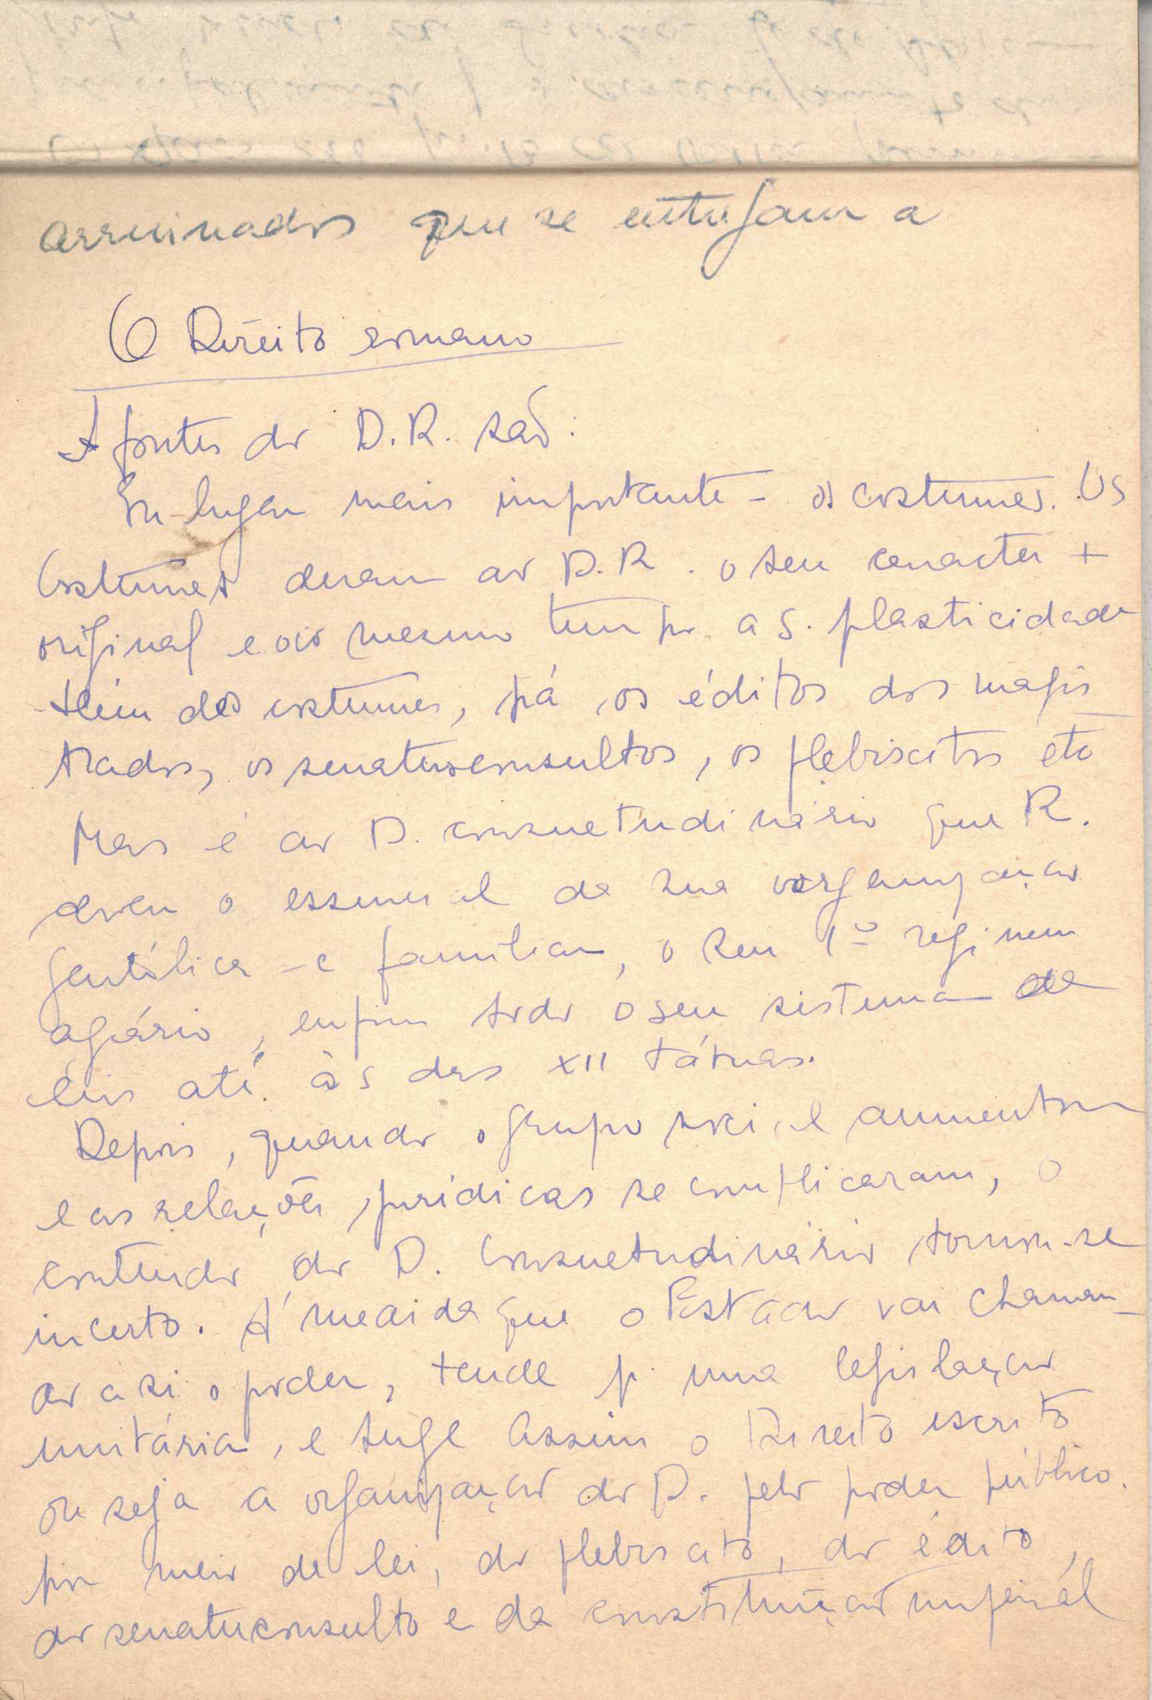 arruinados que se entregam a
O Direito romano
As fontes do D.R. são:
Em lugar mais importante - os costumes. Os
Costumes deram ao D.R. o seu caracter +
original e ao mesmo tempo a s. plasticidade
Além dos costumes, há os éditos dos magis
trados, os senatusconsultos, os plebiscitos etc
Mas é ao D. consuetudinário que R.
deveu o essencial da sua organização
gentílica e familiar, o seu 1º regimem
agrário, enfim todo o seu sistema de
leis até às das XII Tábuas.
Depois, quando o grupo social aumentou
e as relações jurídicas se complicaram, o
conteúdo do D. Consuetudinário tornou-se
incerto. À medida que o Estado vai chaman-
do a si o poder, tende p. uma legislação
unitária, e surge assim o Direito escrito
ou seja a organização do D. pelo poder público.
por meio da lei, do plebiscito, do édito,
do senatuconsulto e da constituição imperial